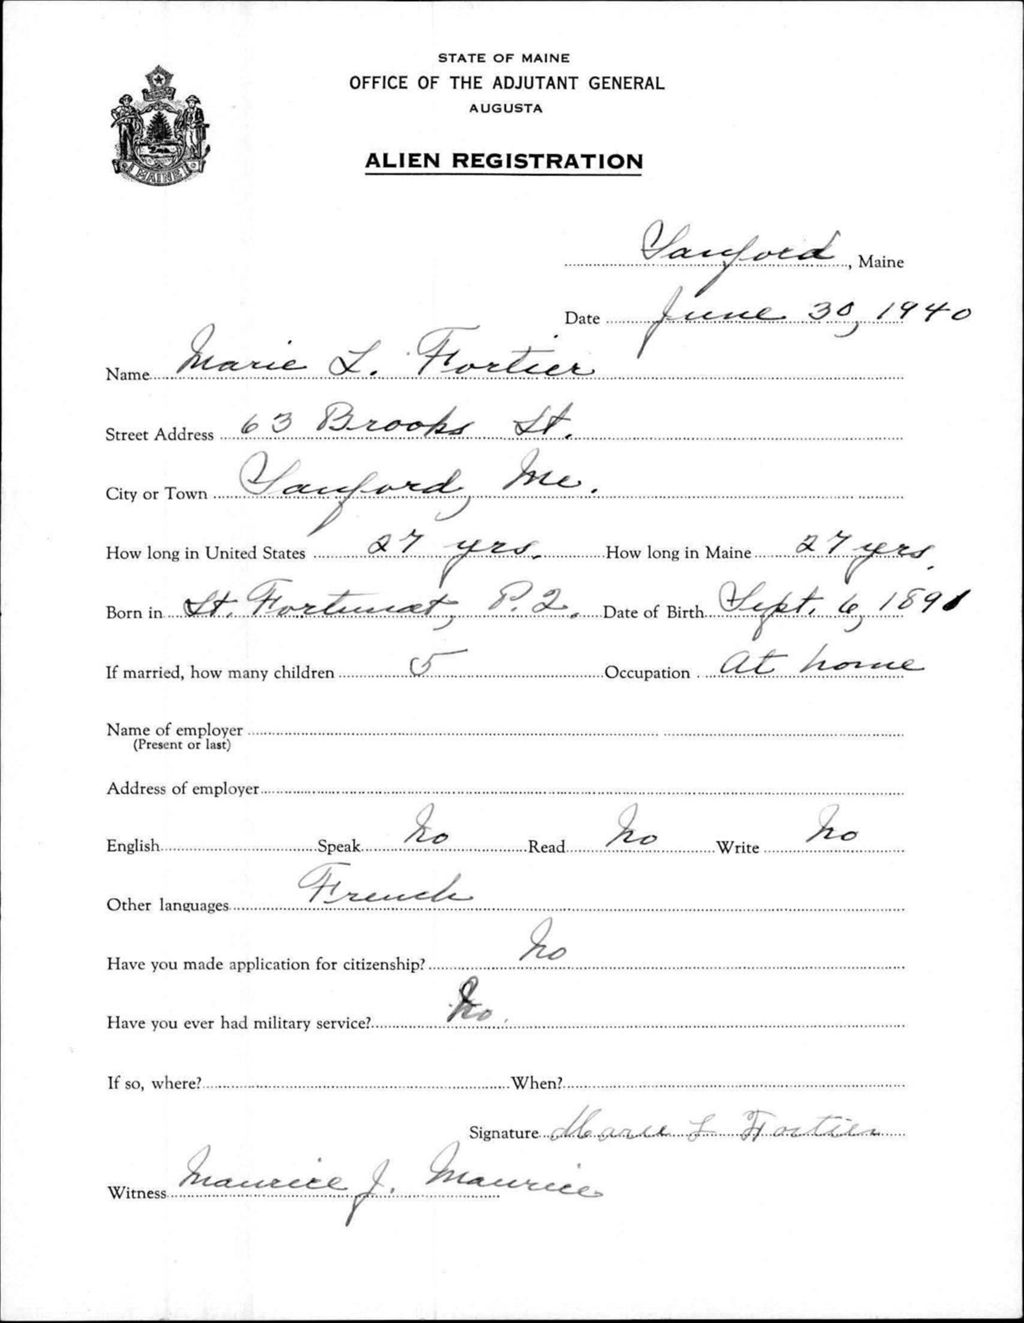 STATE OF MAINE
OFFICE OF THE ADJUTANT GENERAL
AUGUSTA
ALIEN REGISTRATION
MAINE
Sanford, Maine
Date June 30, 1940
Name Marie L. Fortier
Street Address 63 Brooks St.
City or Town Sanford, Me.
How long in United States 27 yrs. How long in Maine 27 yrs.
Born in St. Fortunat, P.Q. Date of Birth Sept. 6, 1891
If married, how many children 5 Occupation At home
Name of employer
(Present or last)
Address of employer
English Speak No Read No Write No
Other languages French
Have you made application for citizenship? No
Have you ever had military service? No.
If so, where? When?
Signature Marie L Fortier
Witness Maurice J. Maurice